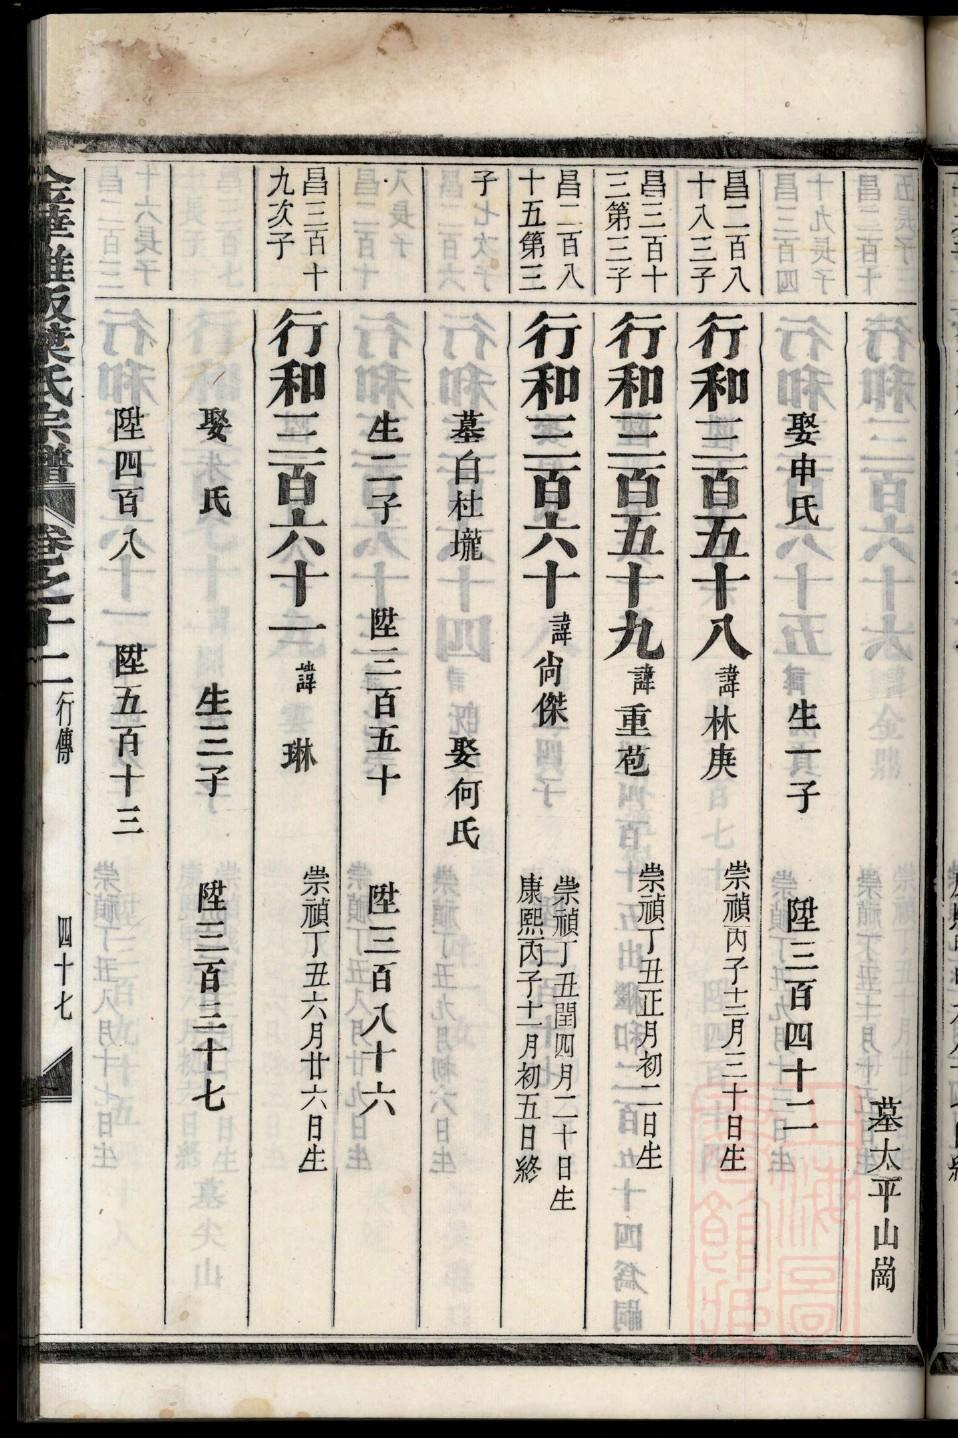 墓太平山崗
娶申氏 生一子 陞三百四十二
昌二百八
十八三子
行和三百五十八 諱林庚 崇禎丙子十二月三十日生
昌三百十
三第三子
行和三百五十九 諱重苞 崇禎丁丑正月初二日生
昌二百八
十五第三
行和三百六十 諱尚傑 崇禎丁丑閏四月二十日生
康熙丙子十一月初五日終
子
墓白杜壠 娶何氏
生二子 陞三百五十 陞三百八十六
昌三百十
九次子
行和三百六十一 諱琳 崇禎丁丑六月廿六日生
娶 氏 生三子 陞三百三十七
陞四百八 陞五百十三
葉氏宗譜 卷之十二 行傳 四十七